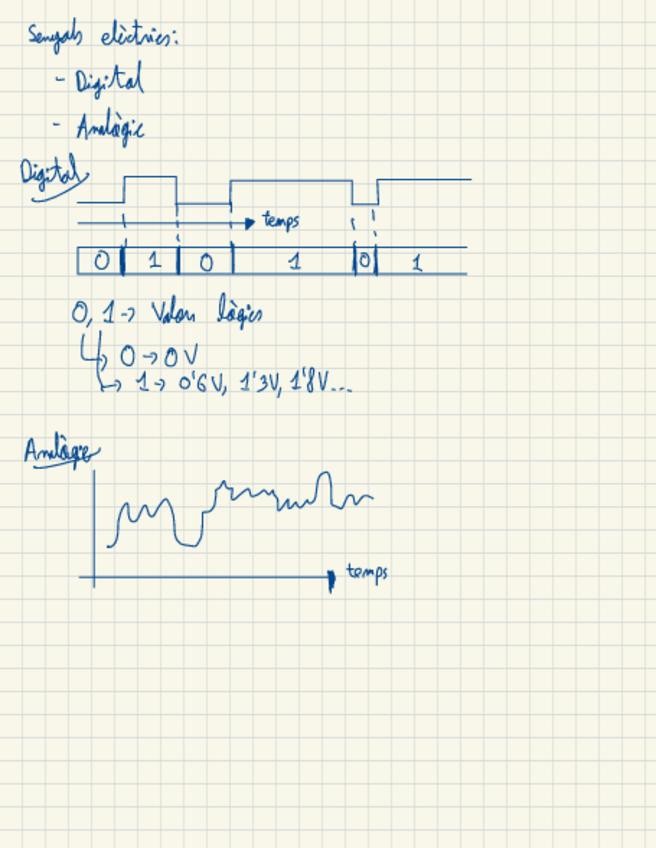 Senyals elèctrics:
- Digital
- Analògic
Digital
temps
0 1 0 1 0 1
0, 1 -> Valors lògics
0 -> 0 V
1 -> 0'6 V, 1'3V, 1'8V...
Analògic
temps